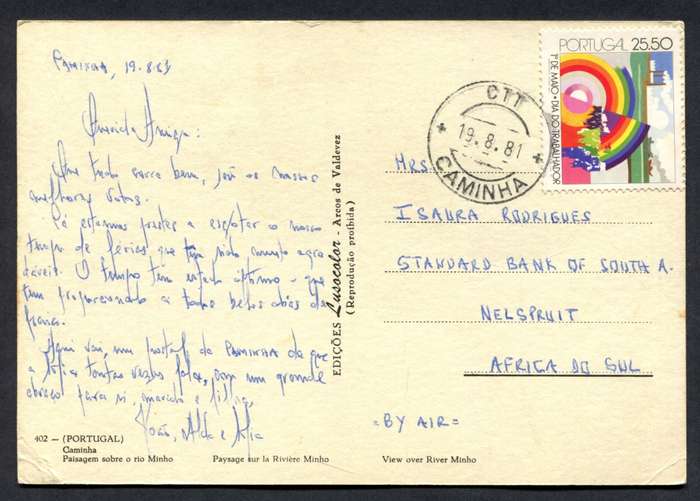 Caminha, 19.8.81
Querida Amiga:
Que tudo corra bem, são os nossos
melhores votos.
Já estamos prestes a esgotar o nosso
tempo de férias que tem sido muito agra
dáveis. O tempo tem estado óptimo - que
tem proporcionado a todos belos dias de
praia.
Aqui vai, um postal de CAMINHA de que
a tantas vezes fala, com um grande
abraço para si, marido e filhos,
João, Alda e
402 — (PORTUGAL)
Caminha
Paisagem sobre o rio Minho
Paysage sur la Rivière Minho
View over River Minho
EDIÇÕES Lusocolor - Arcos de Valdevez
(Reprodução proibida)
CTT
19.8.81
CAMINHA
PORTUGAL 25.50
1º DE MAIO • DIA DO TRABALHADOR
MRS.
ISAURA RODRIGUES
STANDARD BANK OF SOUTH A.
NELSPRUIT
AFRICA DO SUL
=BY AIR=